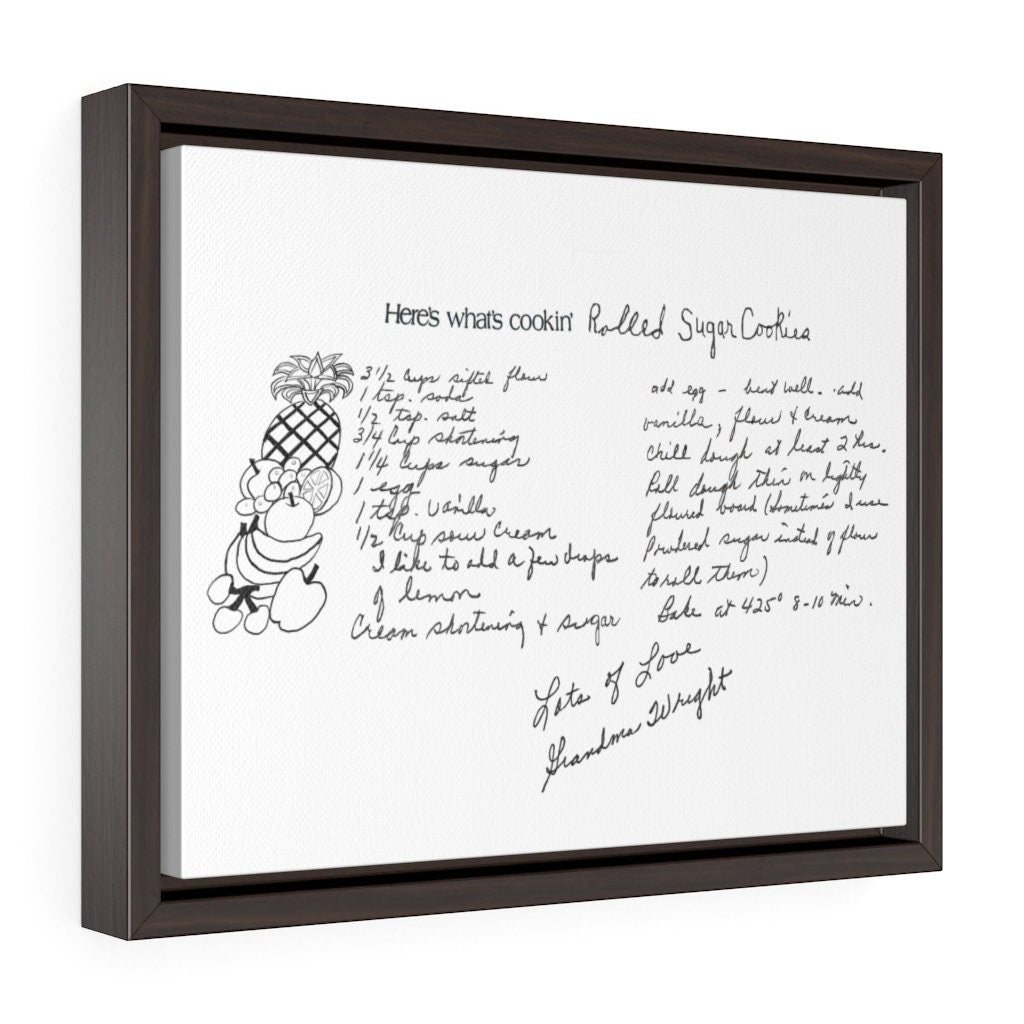 Here's what's cookin' Rolled Sugar Cookies
3 1/2 Cups sifted flour
1 tsp. soda
1/2 tsp. salt
3/4 Cup shortening
1 1/4 Cups sugar
1 egg
1 tsp. vanilla
1/2 Cup sour cream
I like to add a few drops
of lemon
Cream shortening & sugar
add egg - beat well. add
vanilla, flour & cream
Chill dough at least 2 hrs.
Roll dough thin on lightly
floured board (sometimes I use
Powdered sugar instead of flour
to roll them)
Bake at 425° 8-10 min.
Lots of Love
Grandma Wright